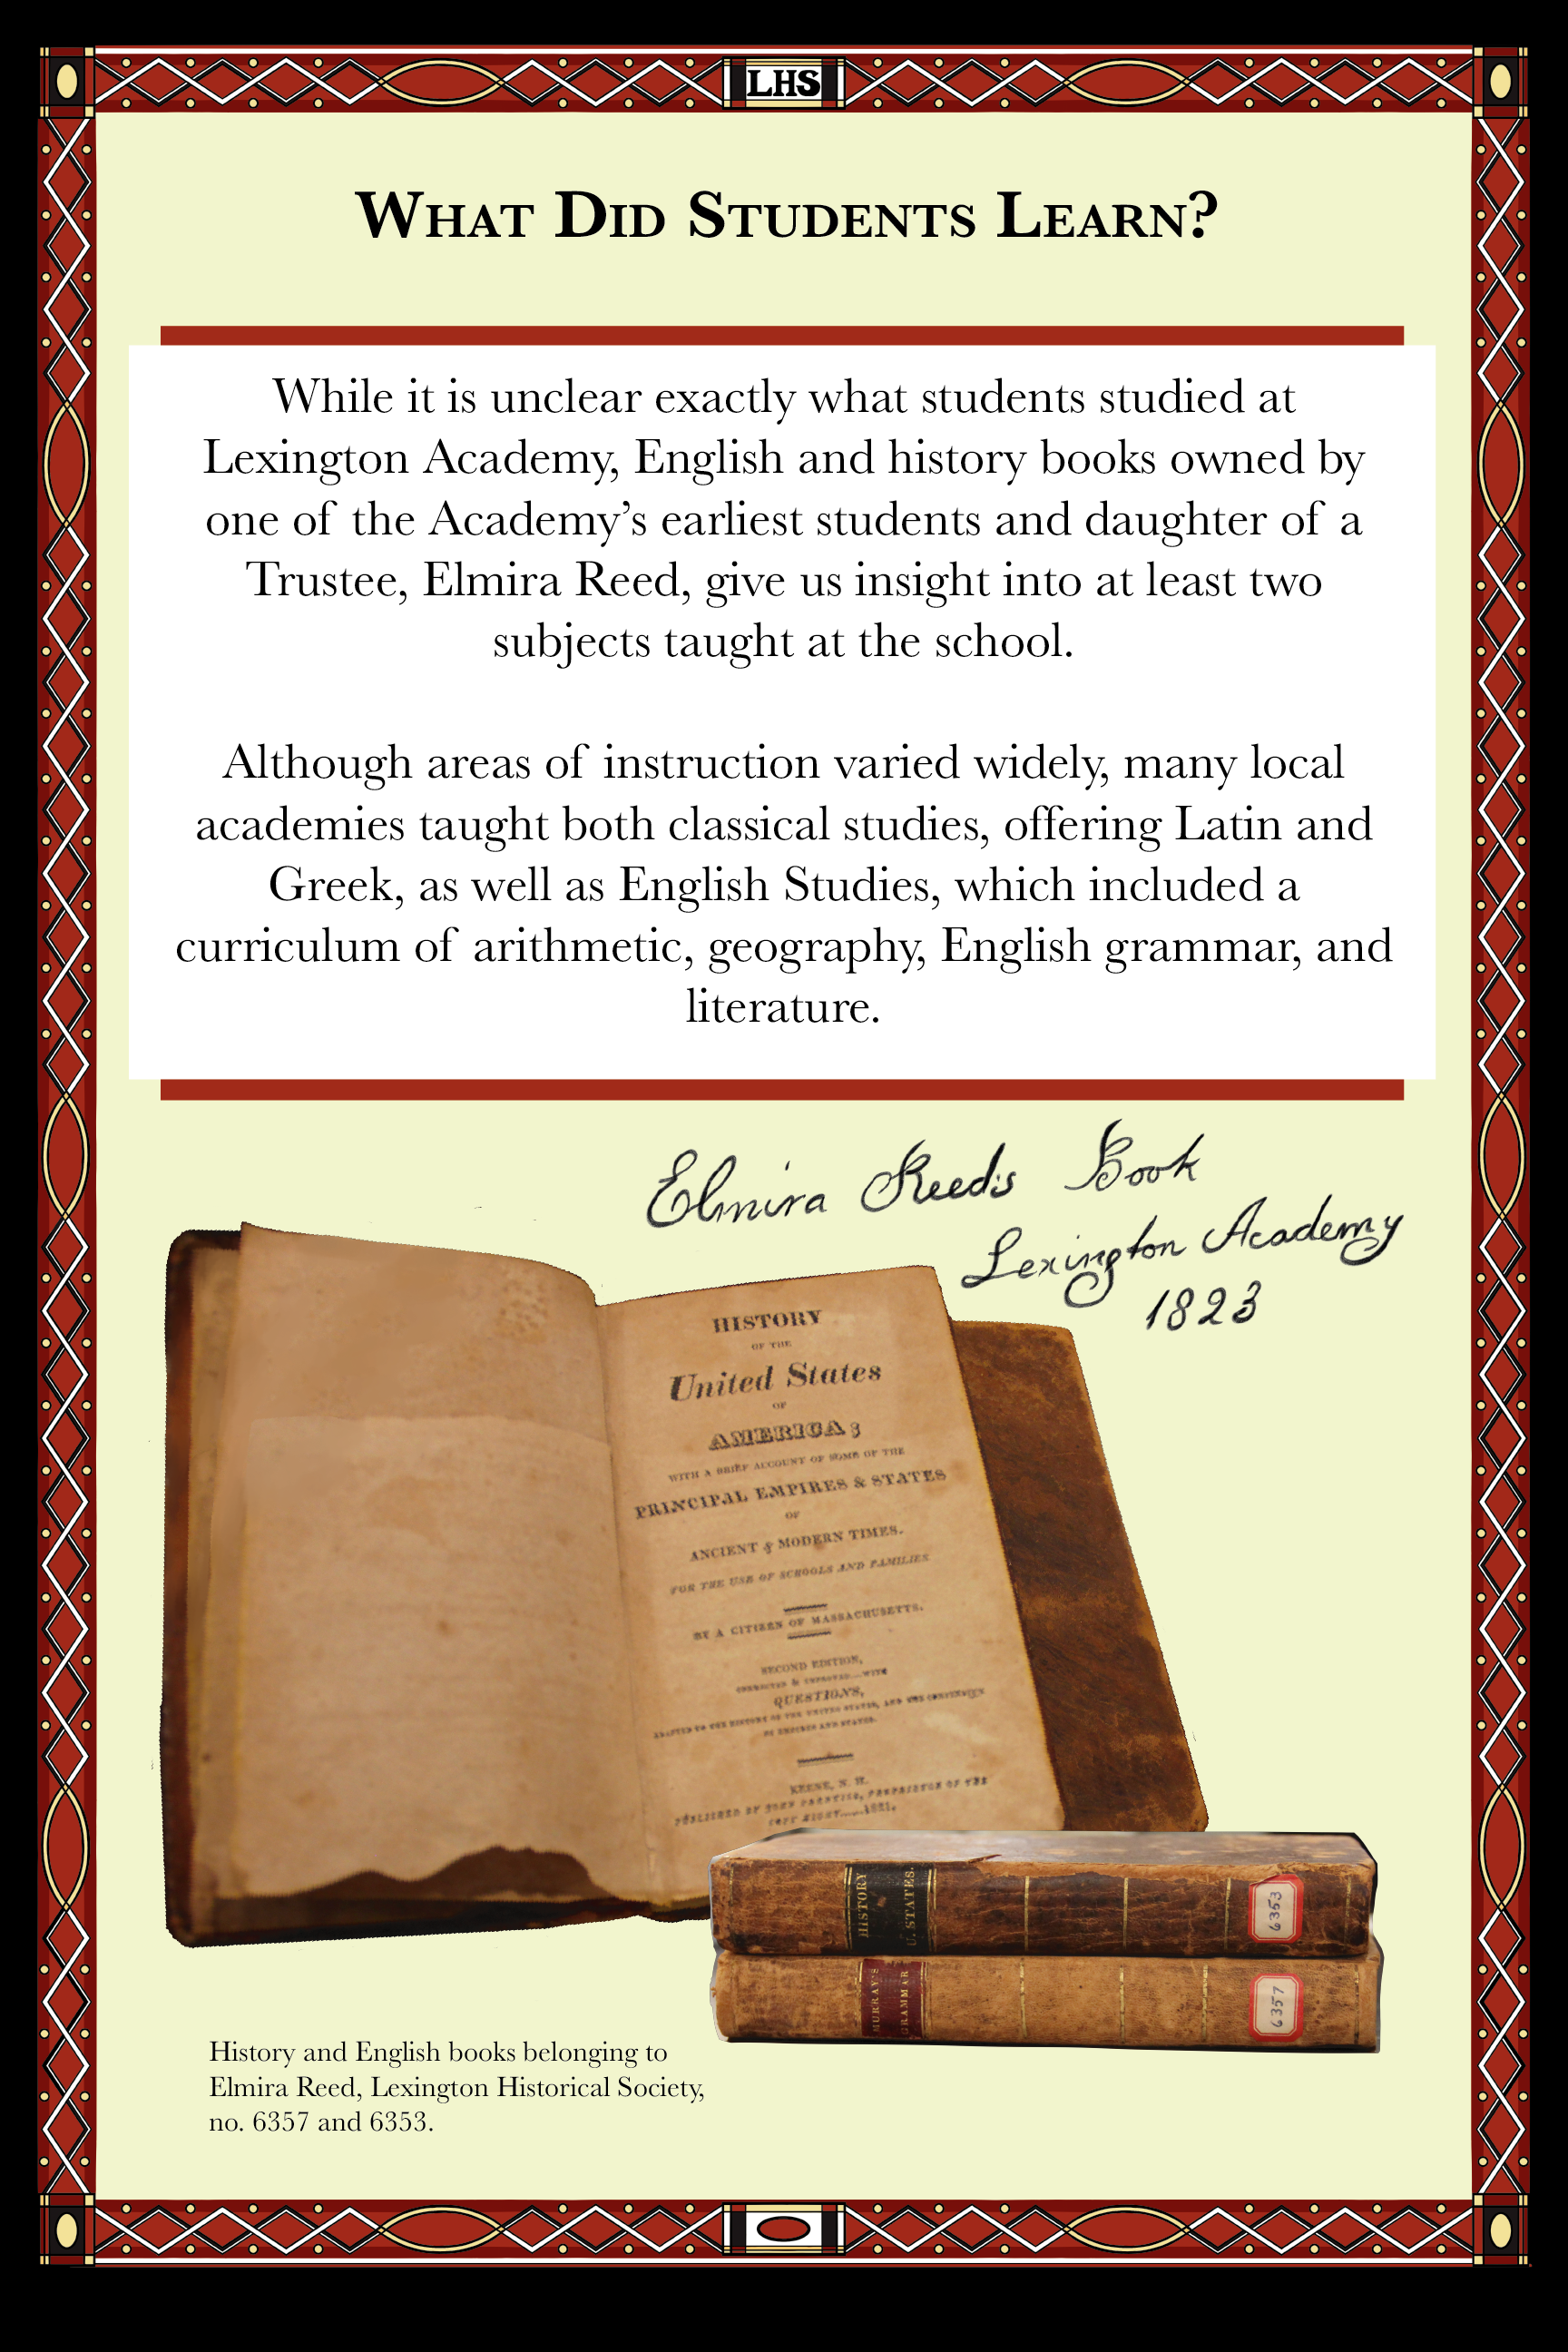 LHS
What Did Students Learn?
While it is unclear exactly what students studied at
Lexington Academy, English and history books owned by
one of the Academy’s earliest students and daughter of a
Trustee, Elmira Reed, give us insight into at least two
subjects taught at the school.
Although areas of instruction varied widely, many local
academies taught both classical studies, offering Latin and
Greek, as well as English Studies, which included a
curriculum of arithmetic, geography, English grammar, and
literature.
Elmira Reeds Book
Lexington Academy
1823
HISTORY
OF THE
United States
OF
AMERICA;
WITH A BRIEF ACCOUNT OF SOME OF THE
PRINCIPAL EMPIRES & STATES
OF
ANCIENT & MODERN TIMES.
FOR THE USE OF SCHOOLS AND FAMILIES
BY A CITIZEN OF MASSACHUSETTS.
SECOND EDITION,
CORRECTED & IMPROVED....WITH
QUESTIONS,
ADAPTED TO THE HISTORY OF THE UNITED STATES, AND THE COMPENDIUM
OF EMPIRES AND STATES.
KEENE, N. H.
PUBLISHED BY JOHN PRENTISS, PROPRIETOR OF THE
COPY RIGHT......1821.
HISTORY
U. STATES.
6353
MURRAY'S
GRAMMAR
6357
History and English books belonging to
Elmira Reed, Lexington Historical Society,
no. 6357 and 6353.